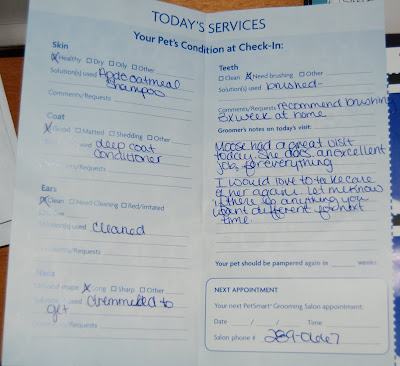 TODAY'S SERVICES
Your Pet's Condition at Check-In:
Skin
X Healthy □ Dry □ Oily □ Other
Solution(s) used Apple oatmeal
shampoo
Comments/Requests
Coat
X Good □ Matted □ Shedding □ Other
used deep coat
conditioner
Comments/Requests
Ears
X Clean □ Need Cleaning □ Red/irritated
Solution(s) used cleaned
Comments/Requests
Nails
shape X Long □ Sharp □ Other
Solution used dremmeled to
get
Comments/Requests
Teeth
□ Clean X Need brushing □ Other
Solution(s) used brushed-
Comments/Requests recommend brushing
3x week at home
Groomer's notes on today's visit:
Moose had a great visit
today. She does an excellent
job, for everything
I would love to take care
of her again. let me know
if there is anything you
want different for next
time.
Your pet should be pampered again in weeks.
NEXT APPOINTMENT
Your next PetSmart Grooming Salon appointment:
Date / / Time
Salon phone #